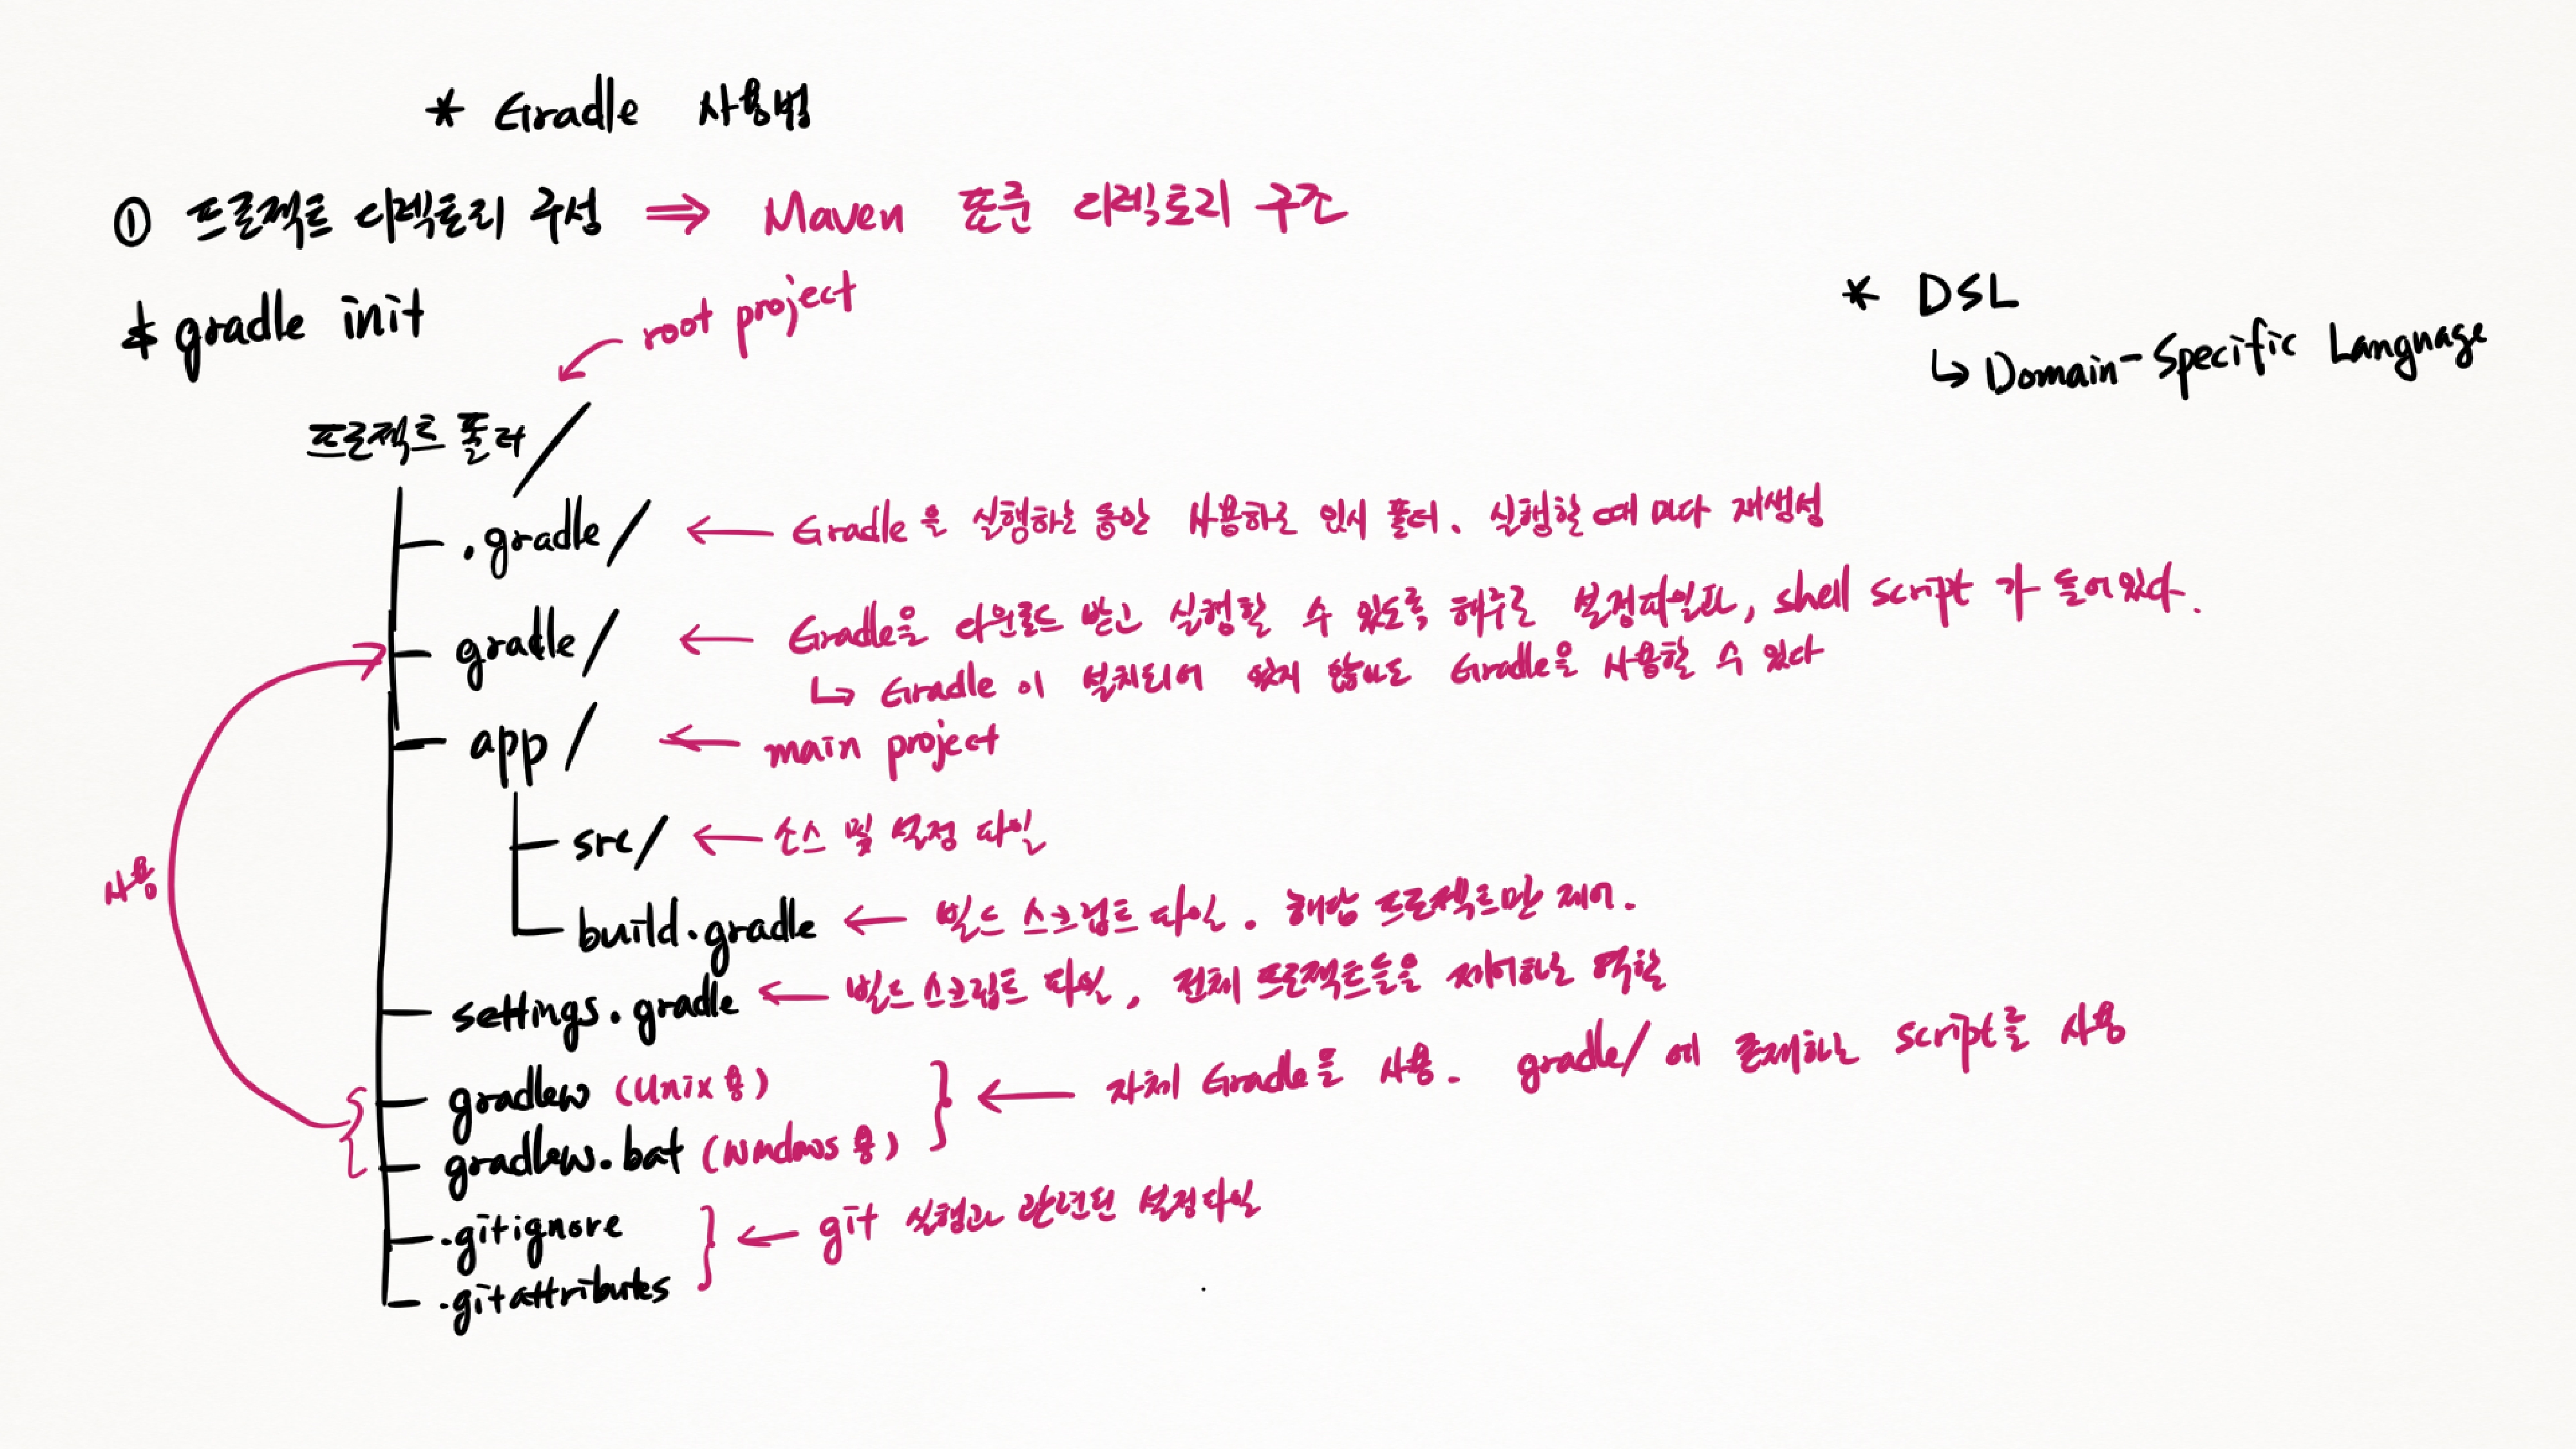 * Gradle 사용법
① 프로젝트 디렉토리 구성 ⇒ Maven 표준 디렉토리 구조
$ gradle init
root project
* DSL
↳ Domain-Specific Language
프로젝트 폴더/
.gradle/ ← Gradle을 실행하는 동안 사용하는 임시 폴더. 실행할 때 마다 재생성
gradle/ ← Gradle을 다운로드 받고 실행할 수 있도록 해주는 설정파일과, shell script 가 들어있다.
↳ Gradle 이 설치되어 있지 않아도 Gradle을 사용할 수 있다
app/ ← main project
src/ ← 소스 및 설정 파일
사용
build.gradle ← 빌드 스크립트 파일. 해당 프로젝트만 제어.
settings.gradle ← 빌드 스크립트 파일, 전체 프로젝트들을 제어하는 역할
gradlew (Unix 용)
gradlew.bat (Windows 용)
} ← 자체 Gradle을 사용. gradle/ 에 존재하는 script를 사용
.gitignore
.gitattributes
} ← git 실행과 관련된 설정파일